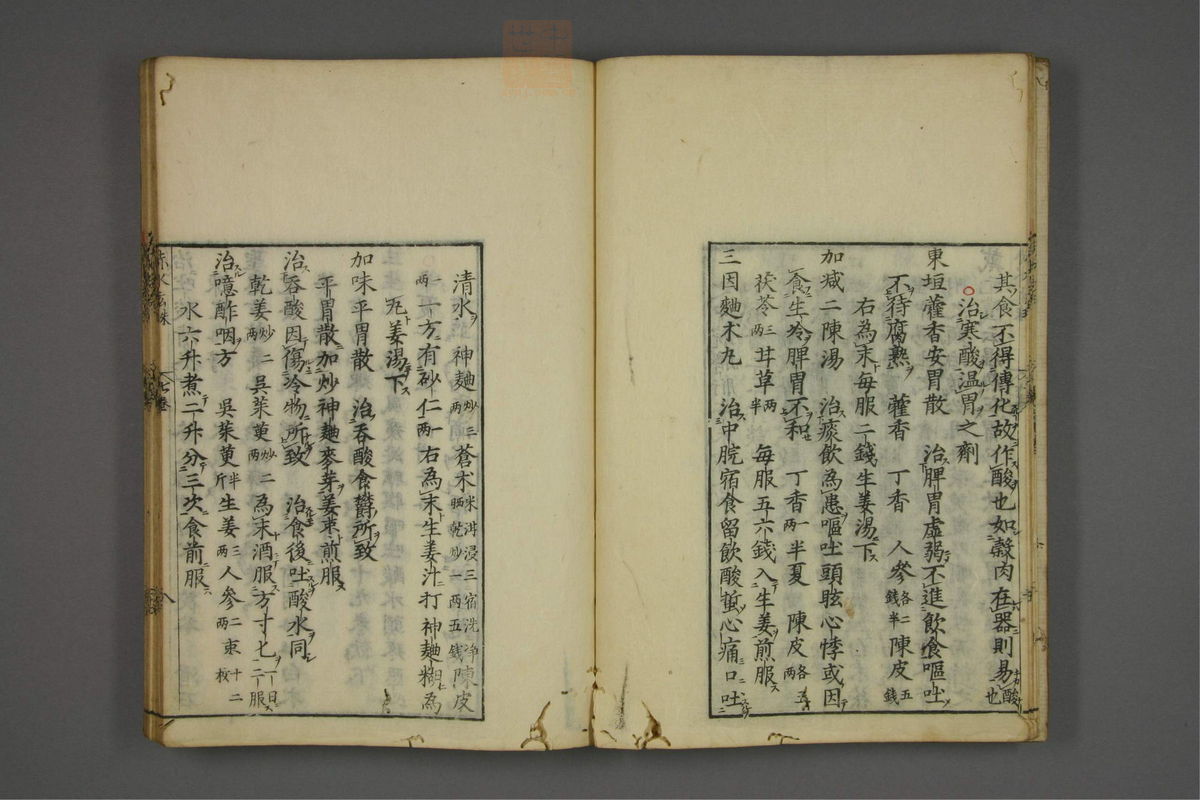 其食不得傳化故作酸也如穀肉在器則易酸也
治寒酸温胃之劑
東垣藿香安胃散　治脾胃虚弱不進飲食嘔吐
不待腐熟　藿香　丁香　人參各二錢半陳皮五錢
右為末毎服二錢生姜湯下
加減二陳湯　治痰飲為患嘔吐頭眩心悸或因
食生冷脾胃不和　丁香一兩半夏　陳皮各五兩
茯苓三兩甘草一兩半　毎服五六錢入生姜煎服
三因麯术丸　治中脘宿食留飲酸蜇心痛口吐
清水　神麯炒三兩蒼术米泔浸三宿洗淨晒乾炒一兩五錢陳皮
一兩一方有砂仁一兩右為末生姜汁打神麯糊為
丸姜湯下
加味平胃散　治吞酸食鬱所致
平胃散加炒神麯麥芽姜枣煎服
治吞酸因傷冷物所致　治食後吐酸水同
乾姜炒二兩吳茱萸炒二兩為末酒服方寸匕一日二服
治噫酢咽方　吳茱萸半斤生姜三兩人參二兩枣十二枚
水六升煮二升分三次食前服
赤水玄珠　七卷　八